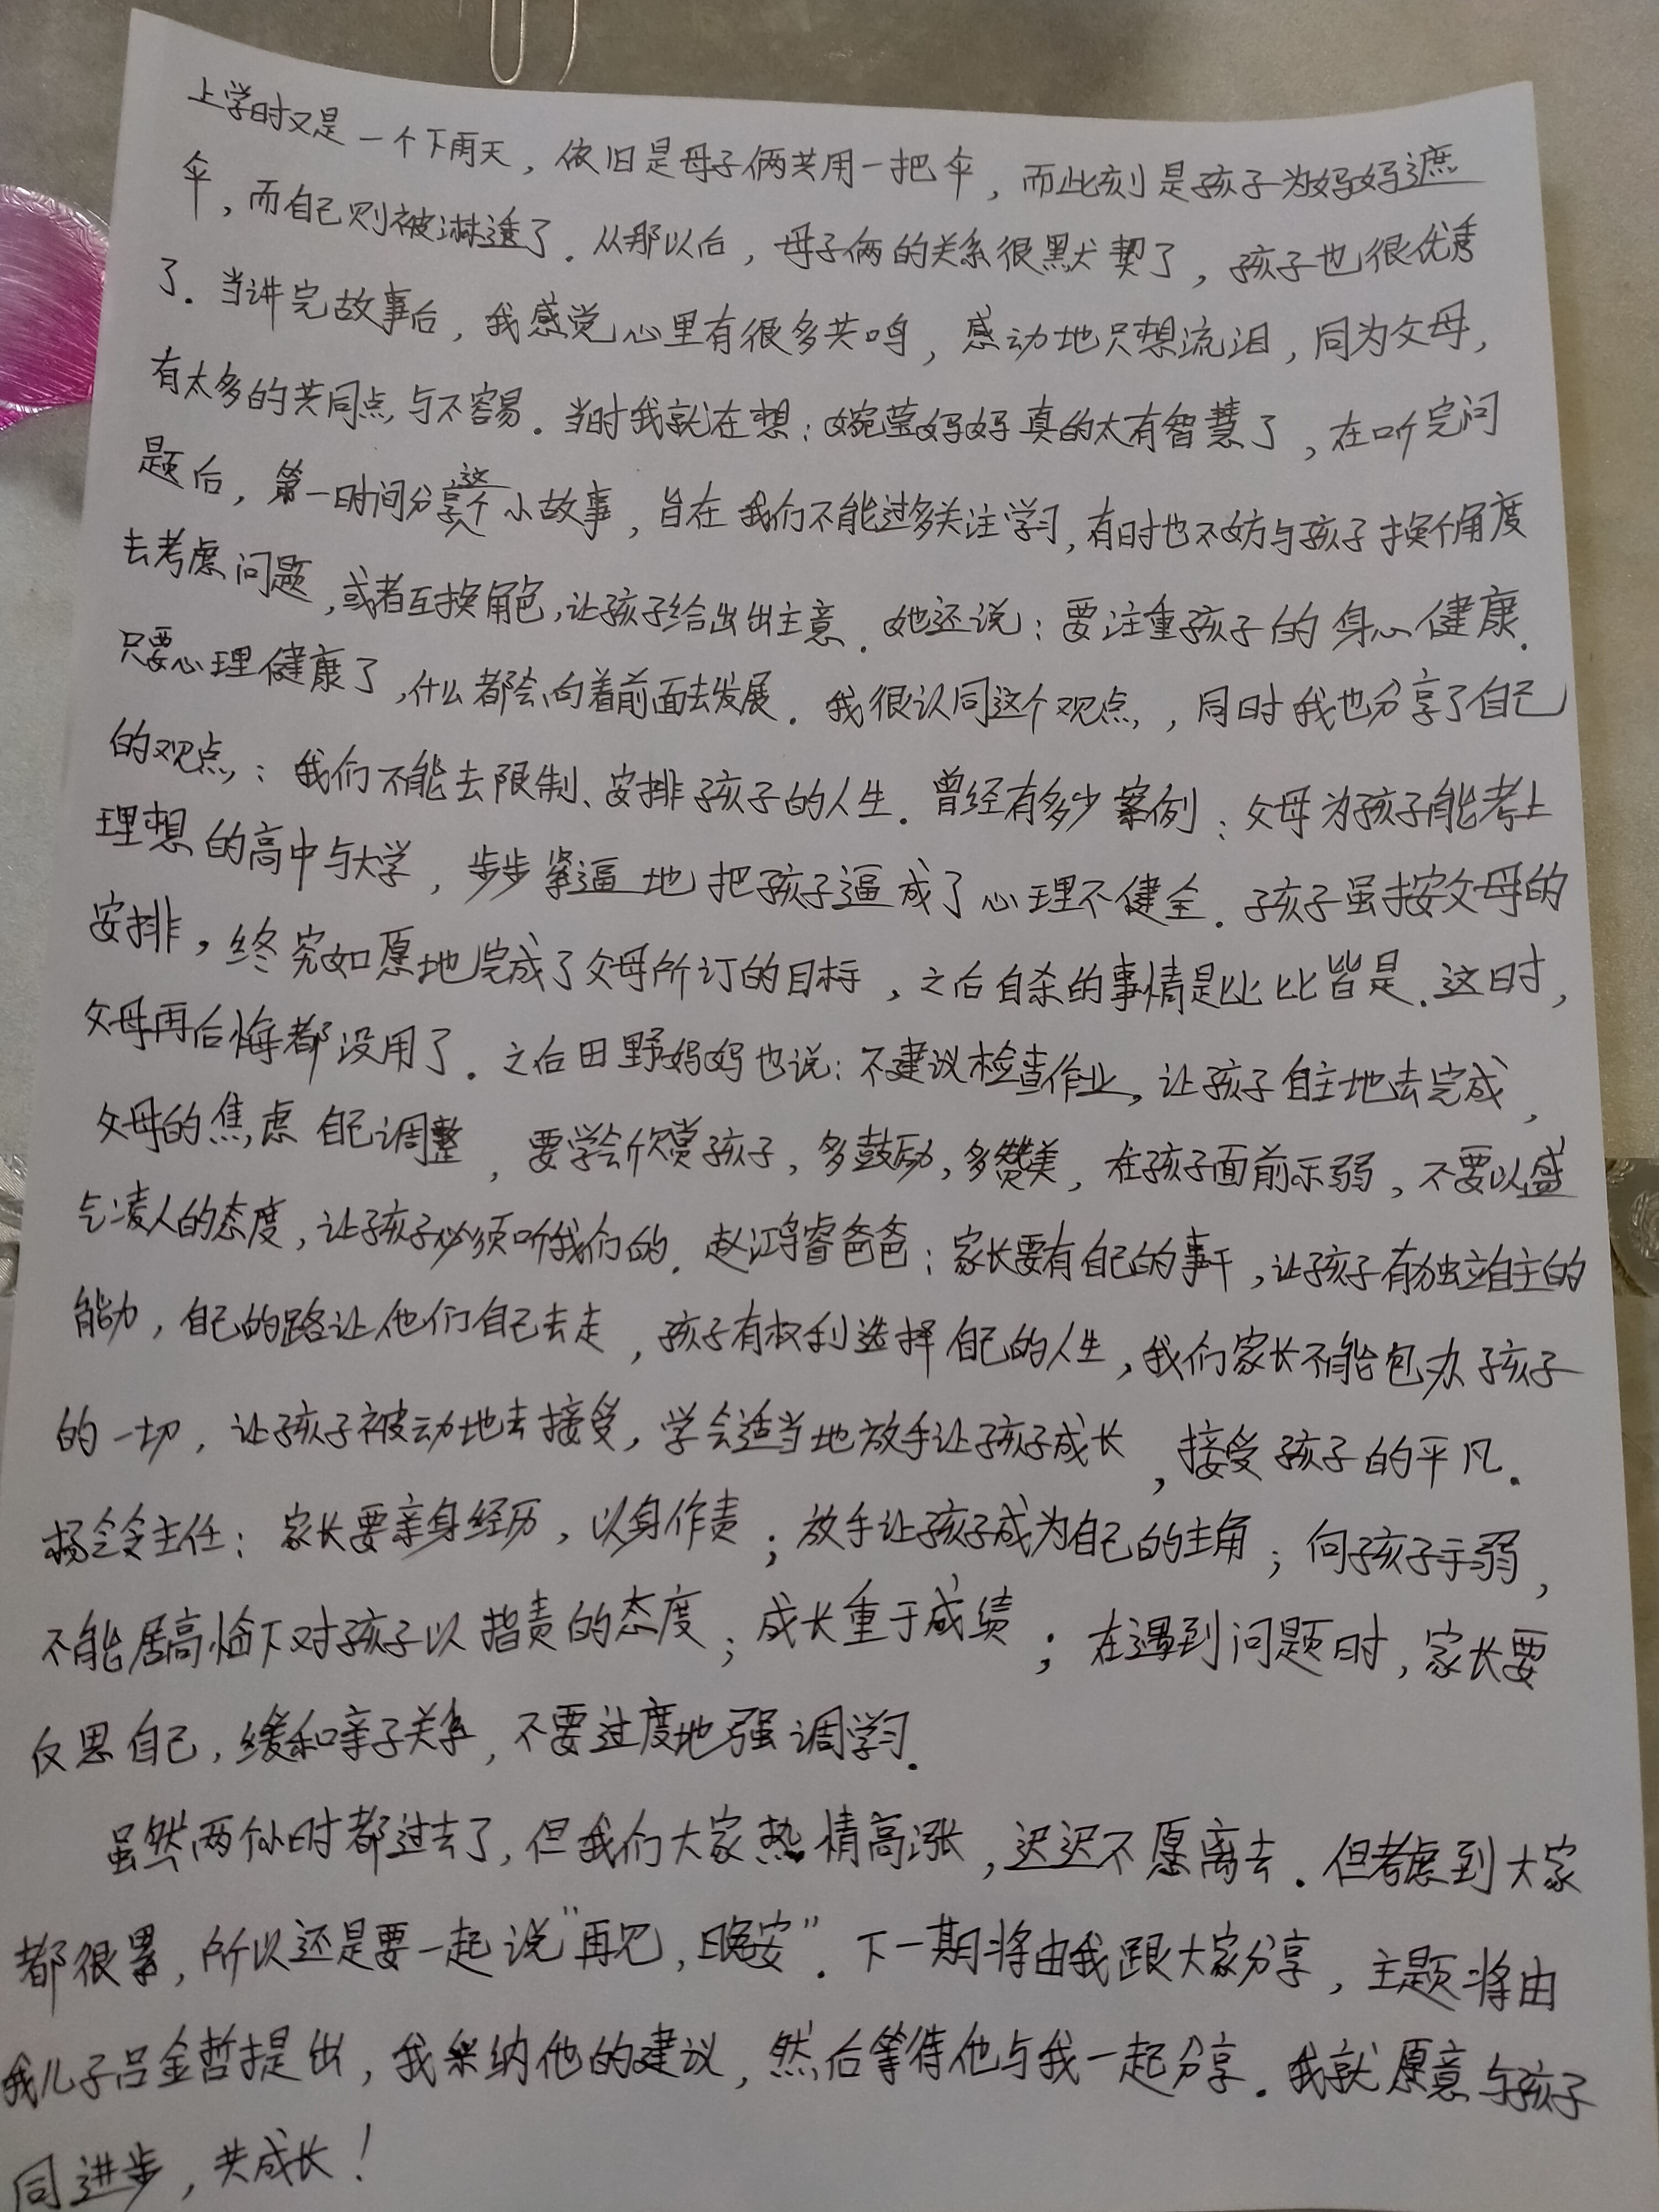 上学时又是一个下雨天，依旧是母子俩共用一把伞，而此刻是孩子为妈妈遮
伞，而自己则被淋透了．从那以后，母子俩的关系很默契了，孩子也很优秀
了．当讲完故事后，我感觉心里有很多共鸣，感动地只想流泪，同为父母，
有太多的共同点与不容易．当时我就在想：婉莹妈妈真的太有智慧了，在听完问
题后，第一时间分享这个小故事，旨在我们不能过多关注学习，有时也不妨与孩子换个角度
去考虑问题，或者互换角色，让孩子给出出主意．她还说：要注重孩子的身心健康．
只要心理健康了，什么都会向着前面去发展．我很认同这个观点，同时我也分享了自己
的观点：我们不能去限制、安排孩子的人生．曾经有多少案例：父母为孩子能考上
理想的高中与大学，步步紧逼地把孩子逼成了心理不健全．孩子虽按父母的
安排，终究如愿地完成了父母所订的目标，之后自杀的事情是比比皆是．这时，
父母再后悔都没用了．之后田野妈妈也说：不建议检查作业，让孩子自主地去完成，
父母的焦虑自己调整，要学会欣赏孩子，多鼓励，多赞美，在孩子面前示弱，不要以盛
气凌人的态度，让孩子必须听我们的．赵鸿睿爸爸：家长要有自己的事干，让孩子有独立自主的
能力，自己的路让他们自己去走，孩子有权利选择自己的人生，我们家长不能包办孩子
的一切，让孩子被动地去接受，学会适当地放手让孩子成长，接受孩子的平凡．
杨会令主任：家长要亲身经历，以身作责；放手让孩子成为自己的主角；向孩子示弱，
不能居高临下对孩子以指责的态度；成长重于成绩；在遇到问题时，家长要
反思自己，缓和亲子关系，不要过度地强调学习．
虽然两个小时都过去了，但我们大家热情高涨，迟迟不愿离去．但考虑到大家
都很累，所以还是要一起说“再见，晚安”．下一期将由我跟大家分享，主题将由
我儿子吕金哲提出，我采纳他的建议，然后等待他与我一起分享．我就愿意与孩子
同进步，共成长！